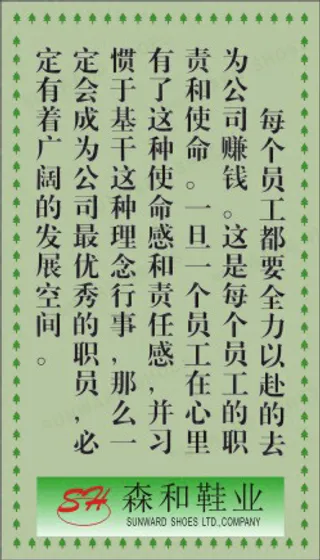 每个员工都要全力以赴的去
为公司赚钱。这是每个员工的职
责和使命。一旦一个员工在心里
有了这种使命感和责任感，并习
惯于基干这种理念行事，那么一
定会成为公司最优秀的职员，必
定有着广阔的发展空间。
SH 森和鞋业
SUNWARD SHOES LTD.,COMPANY